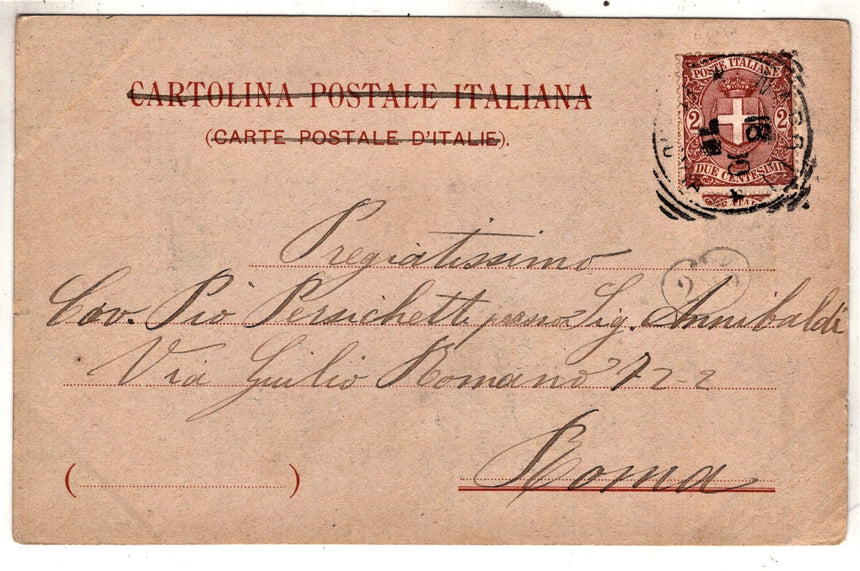 CARTOLINA POSTALE ITALIANA
(CARTE POSTALE D'ITALIE).
POSTE ITALIANE
2 2
DUE CENTESIMI
NAPOLI
Pregiatissimo
Cav. Pio Persichetti presso Sig. Annibaldi
Via Giulio Romano 72-2
Roma
( )